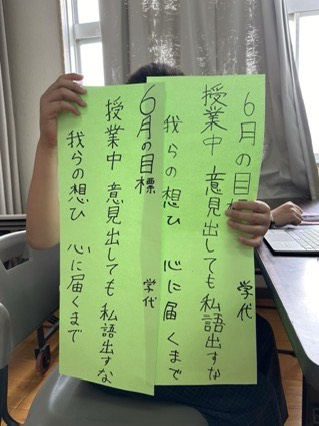 6月の目標
学代
授業中 意見出しても私語出すな
我らの想ひ 心に届くまで
6月の目標
学代
授業中 意見出しても 私語出すな
我らの想ひ 心に届くまで